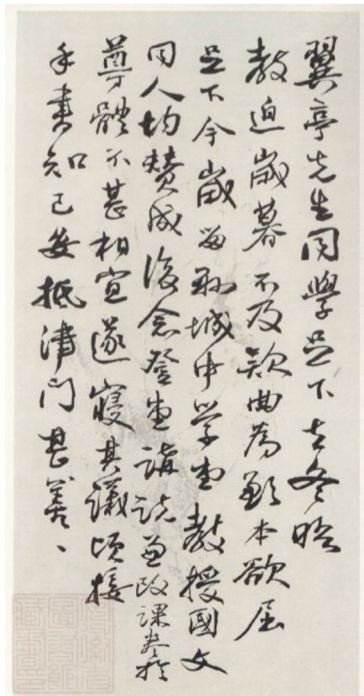 翼亭先生同學足下去冬晤
教迫歲暮不及款曲為歉本欲屈
足下今歲留郡城中学堂教授國文
同人均贊成後念登堂講說兼改課卷於
尊體不甚相宜遂寢其議頃接
手書知已安抵津門甚善、